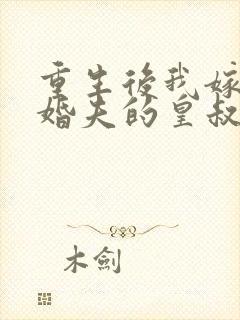 重生後我嫁
婚夫的皇叔
木劍